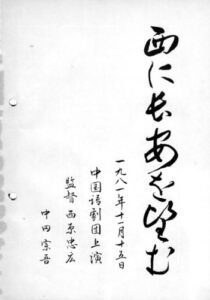 西に長安を望む
一九八一年十一月十五日
中国語劇団上演
監督 西原忠広
中田宗吾